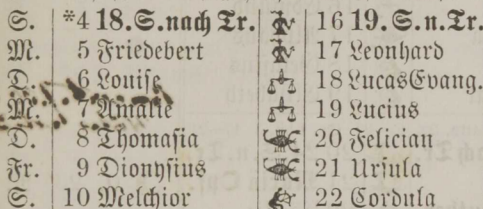 S. *4 18. S. nach Tr. 16 19. S. n. Tr.
M. 5 Friedebert 17 Leonhard
D. 6 Louise 18 Lucas Evang.
M. 7 Amalie 19 Lucius
D. 8 Thomasia 20 Felician
Fr. 9 Dionysius 21 Ursula
S. 10 Melchior 22 Cordula